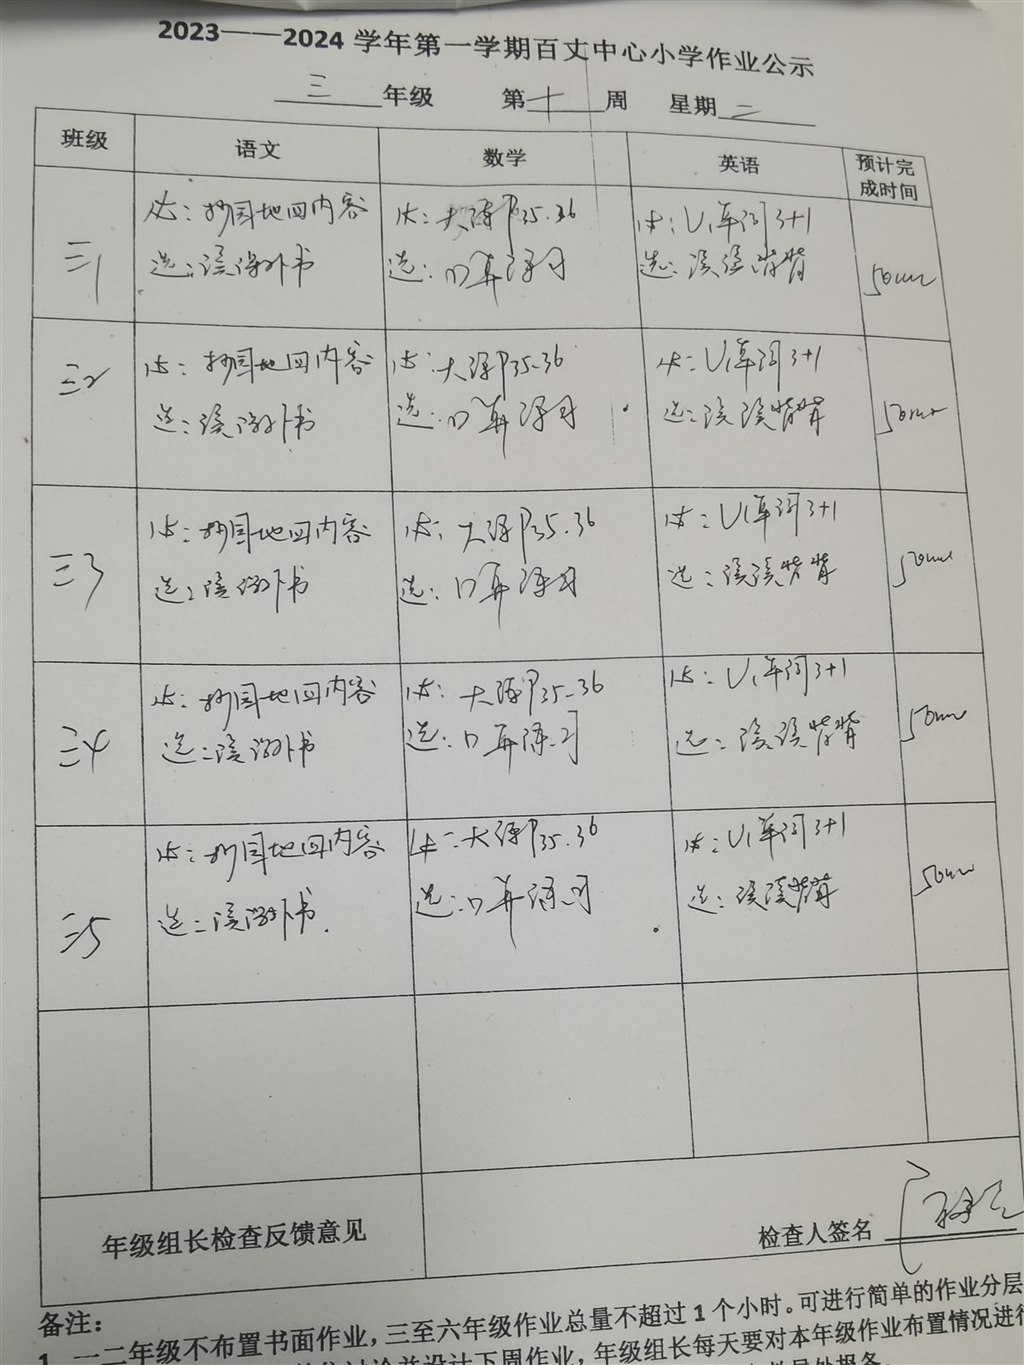 2023——2024 学年第一学期百丈中心小学作业公示
三 年级 第十周 星期二
班级 语文 数学 英语 预计完成时间
三1
必：抄园地四内容
选：读课外书
必：大练P35.36
选：口算练习
必：U1单词3+1
选：读读背背
50min
三2
必：抄园地四内容
选：读课外书
必：大练P35.36
选：口算练习
必：U1单词3+1
选：读读背背
50min
三3
必：抄园地四内容
选：读课外书
必：大练P35.36
选：口算练习
必：U1单词3+1
选：读读背背
50min
三4
必：抄园地四内容
选：读课外书
必：大练P35.36
选：口算练习
必：U1单词3+1
选：读读背背
50min
三5
必：抄园地四内容
选：读课外书.
必：大练P35.36
选：口算练习
必：U1单词3+1
选：读读背背
50min
年级组长检查反馈意见
检查人签名
备注：
1、一二年级不布置书面作业，三至六年级作业总量不超过 1 个小时。可进行简单的作业分层
计下周作业，年级组长每天要对本年级作业布置情况进行